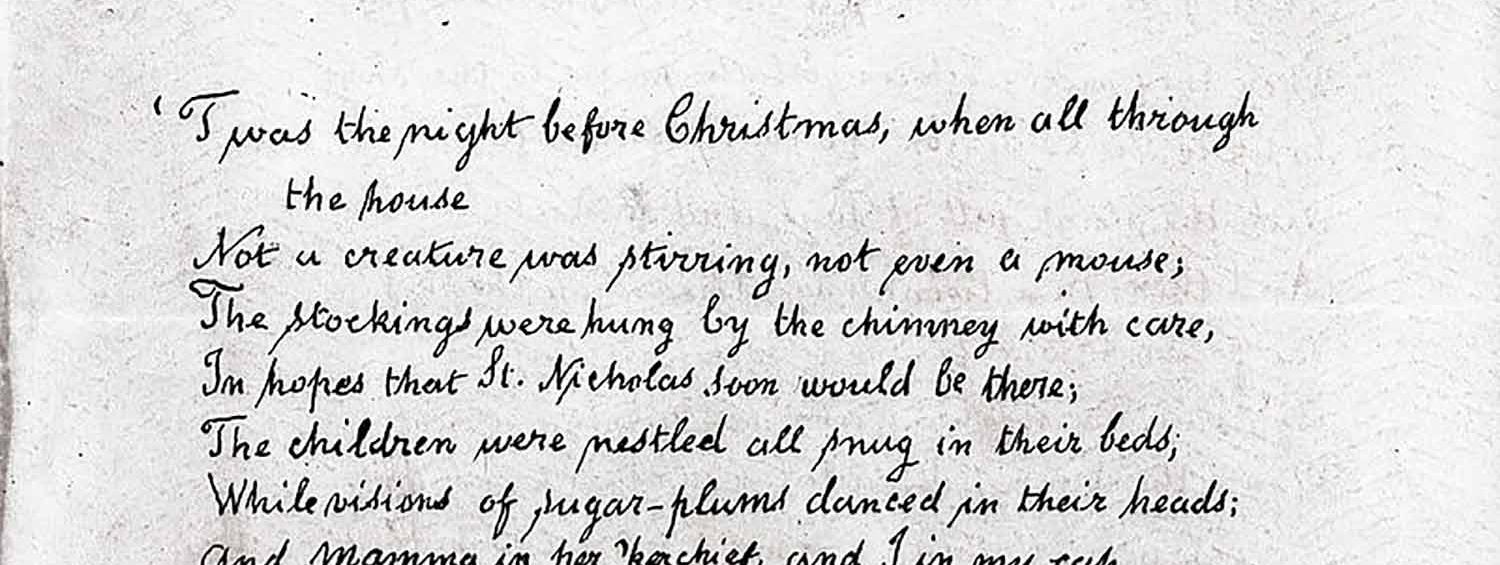 'Twas the night before Christmas, when all through
the house
Not a creature was stirring, not even a mouse;
The stockings were hung by the chimney with care,
In hopes that St. Nicholas soon would be there;
The children were nestled all snug in their beds;
While visions of sugar-plums danced in their heads;
And Mamma in her 'kerchief, and I in my cap